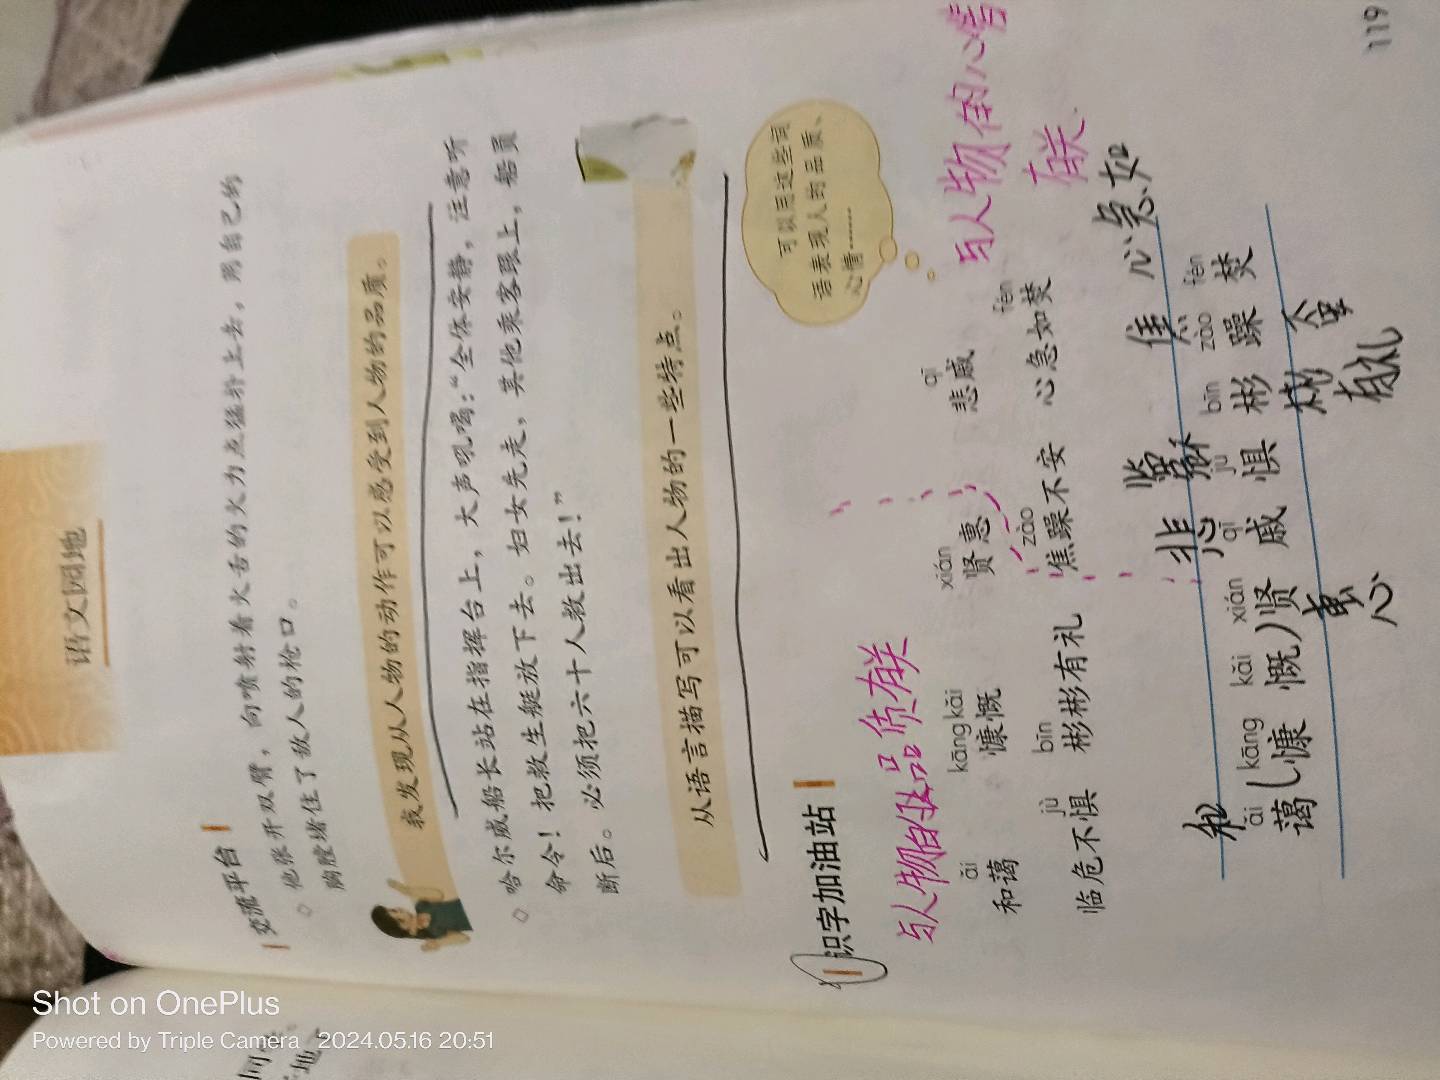 语文园地
交流平台
◇ 他张开双臂，向喷射着火舌的火力点猛扑上去，用自己的
胸膛堵住了敌人的枪口。
我发现从人物的动作可以感受到人物的品质。
◇ 哈尔威船长站在指挥台上，大声吼喝：“全体安静，注意听
命令！把救生艇放下去。妇女先走，其他乘客跟上，船员
断后。必须把六十人救出去！”
从语言描写可以看出人物的一些特点。
识字加油站
可以用这些词
语表现人的品质、
心情……
与人物的品质有关
与人物的心情
有关
ǎi kāng kǎi xián qī
和蔼 慷慨 贤惠 悲戚
jù bīn zào fén
临危不惧 彬彬有礼 焦躁不安 心急如焚
和 悲 临 焦 心急如
ǎi kāng kǎi xián qī jù bīn zào fén
蔼 慷 慨 贤 戚 惧 彬 躁 焚
惠 彬
有礼
119
Shot on OnePlus
Powered by Triple Camera 2024.05.16 20:51